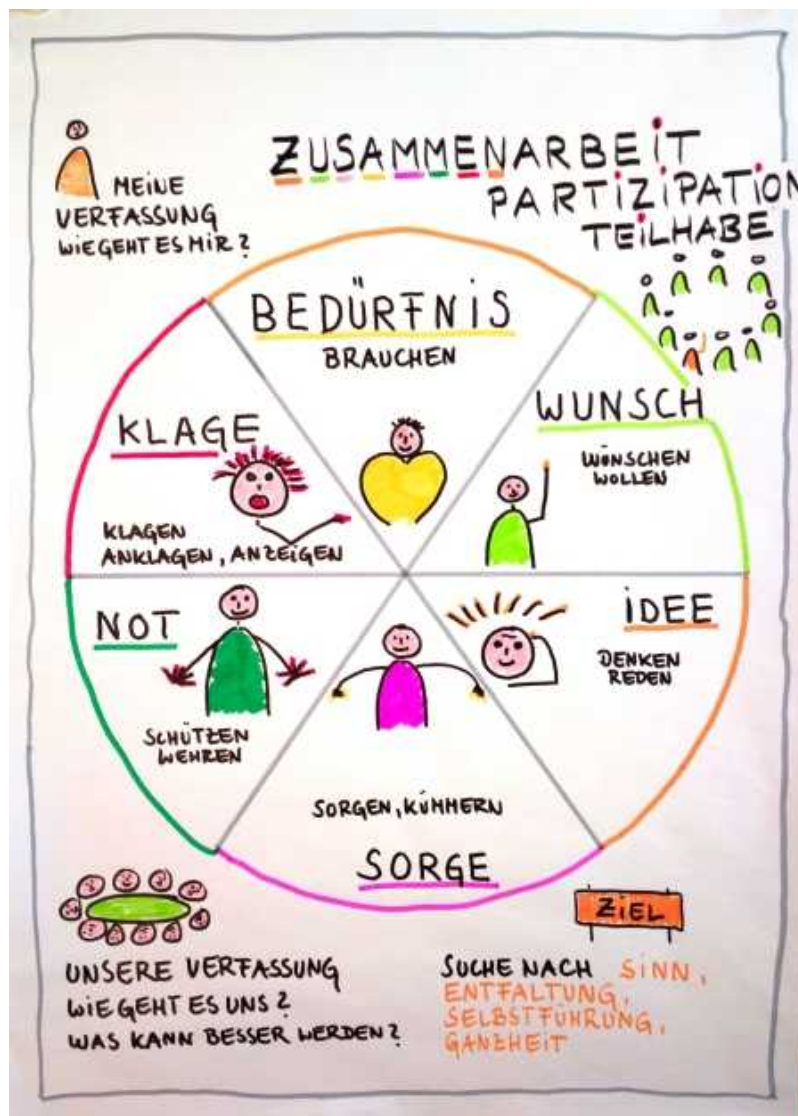 MEINE
VERFASSUNG
WIE GEHT ES MIR?
ZUSAMMENARBEIT
PARTIZIPATION
TEILHABE
BEDÜRFNIS
BRAUCHEN
WUNSCH
WÜNSCHEN
WOLLEN
KLAGE
KLAGEN
ANKLAGEN, ANZEIGEN
IDEE
DENKEN
REDEN
NOT
SCHÜTZEN
WEHREN
SORGEN, KÜMMERN
SORGE
UNSERE VERFASSUNG
WIE GEHT ES UNS?
WAS KANN BESSER WERDEN?
ZIEL
SUCHE NACH SINN,
ENTFALTUNG,
SELBSTFÜHRUNG,
GANZHEIT